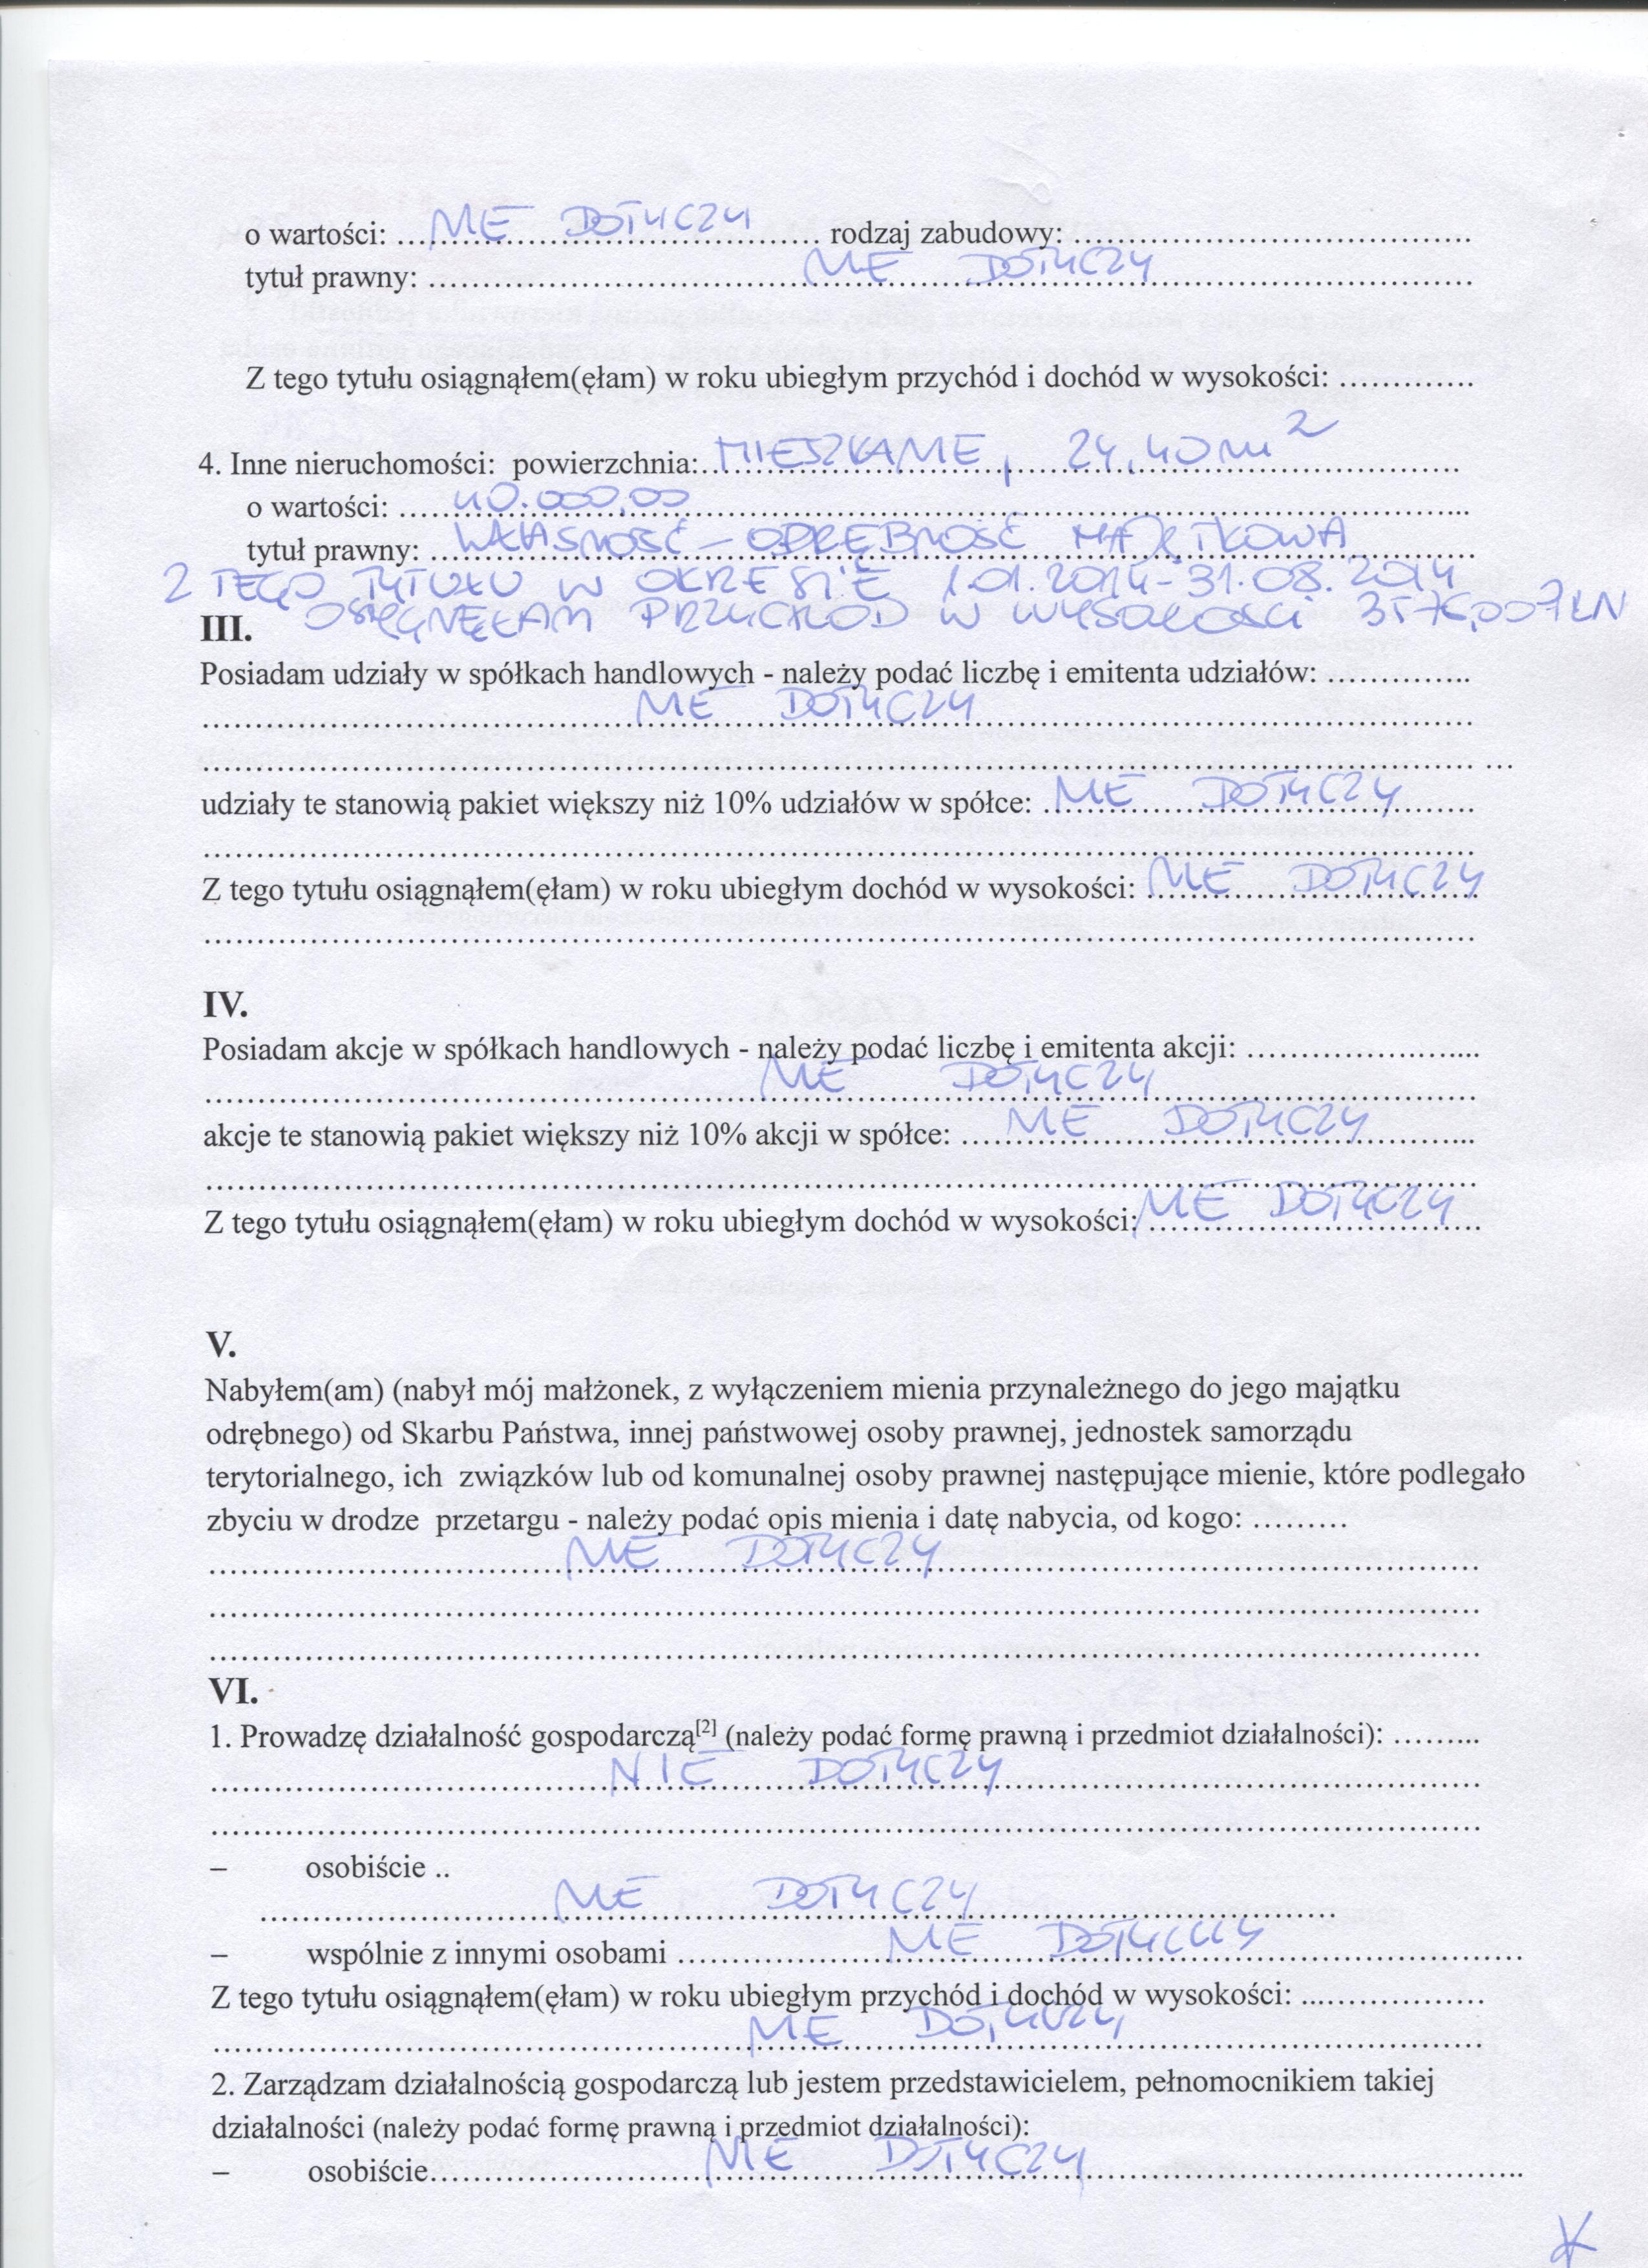 o wartości: ...NIE DOTYCZY... rodzaj zabudowy: ...
tytuł prawny: ...NIE DOTYCZY...
Z tego tytułu osiągnąłem(ęłam) w roku ubiegłym przychód i dochód w wysokości: ...
4. Inne nieruchomości: powierzchnia:..MIESZKANIE, 24,40 m²...
o wartości: ...40.000,00...
tytuł prawny: ...WŁASNOŚĆ – ODRĘBNOŚĆ MAJĄTKOWA...
Z TEGO TYTUŁU W OKRESIE 1.01.2014-31.08.2014
OSIĄGNĘŁAM PRZYCHÓD W WYSOKOŚCI 3576,00 ZŁN
III.
Posiadam udziały w spółkach handlowych - należy podać liczbę i emitenta udziałów: ...
...NIE DOTYCZY...
...
udziały te stanowią pakiet większy niż 10% udziałów w spółce: ...NIE DOTYCZY...
...
Z tego tytułu osiągnąłem(ęłam) w roku ubiegłym dochód w wysokości: ...NIE DOTYCZY...
...
IV.
Posiadam akcje w spółkach handlowych - należy podać liczbę i emitenta akcji: ...
...NIE DOTYCZY...
akcje te stanowią pakiet większy niż 10% akcji w spółce: ...NIE DOTYCZY...
...
Z tego tytułu osiągnąłem(ęłam) w roku ubiegłym dochód w wysokości: ...NIE DOTYCZY...
V.
Nabyłem(am) (nabył mój małżonek, z wyłączeniem mienia przynależnego do jego majątku
odrębnego) od Skarbu Państwa, innej państwowej osoby prawnej, jednostek samorządu
terytorialnego, ich związków lub od komunalnej osoby prawnej następujące mienie, które podlegało
zbyciu w drodze przetargu - należy podać opis mienia i datę nabycia, od kogo: ...
...NIE DOTYCZY...
...
...
VI.
1. Prowadzę działalność gospodarczą[2] (należy podać formę prawną i przedmiot działalności): ...
...NIE DOTYCZY...
...
– osobiście ..
...NIE DOTYCZY...
– wspólnie z innymi osobami ...NIE DOTYCZY...
Z tego tytułu osiągnąłem(ęłam) w roku ubiegłym przychód i dochód w wysokości: ...
...NIE DOTYCZY...
2. Zarządzam działalnością gospodarczą lub jestem przedstawicielem, pełnomocnikiem takiej
działalności (należy podać formę prawną i przedmiot działalności):
– osobiście...NIE DOTYCZY...